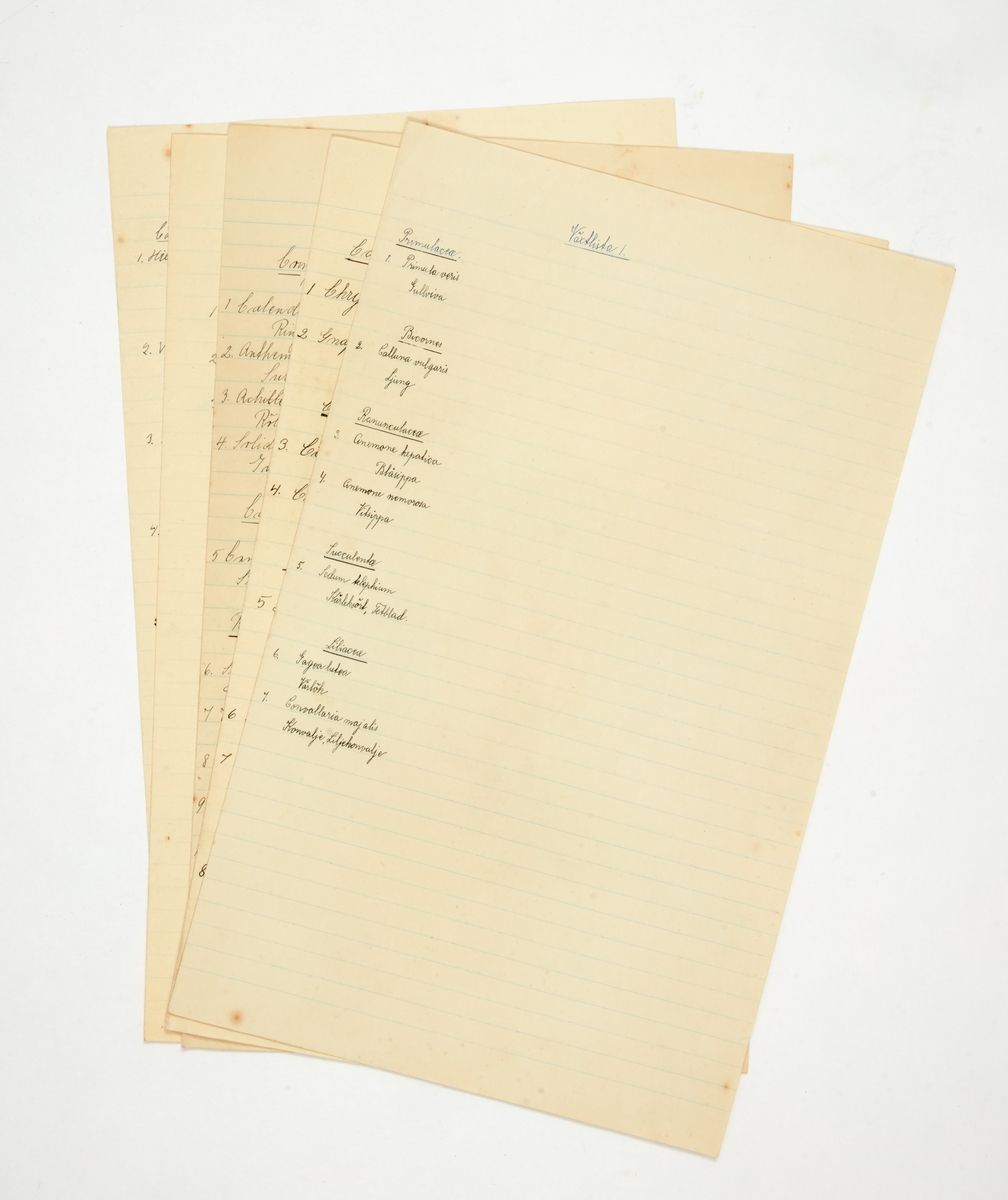 Växtlista 1.
Primulaceæ.
1. Primula veris
Gullviva
Bicornes
2. Calluna vulgaris
Ljung
Ranunculaceæ
3. Anemone hepatica
Blåsippa
4. Anemone nemorosa
Vitsippa
Succulentæ
5. Sedum telephium
Kärleksört, Fetblad.
Liliaceæ
6. Gagea lutea
Vårlök
7. Convallaria majalis
Konvalje, Liljekonvalje
Co
1 Chry
2 Gna
3. Ca
4. C
5
6
7
8
Com
1 Calend
Rin
2. Anthem
Sur
3. Achille
Röl
4. Solid
Ca
5
6.
7
8
9
1
2
1. Hie
2. V
3.
4.